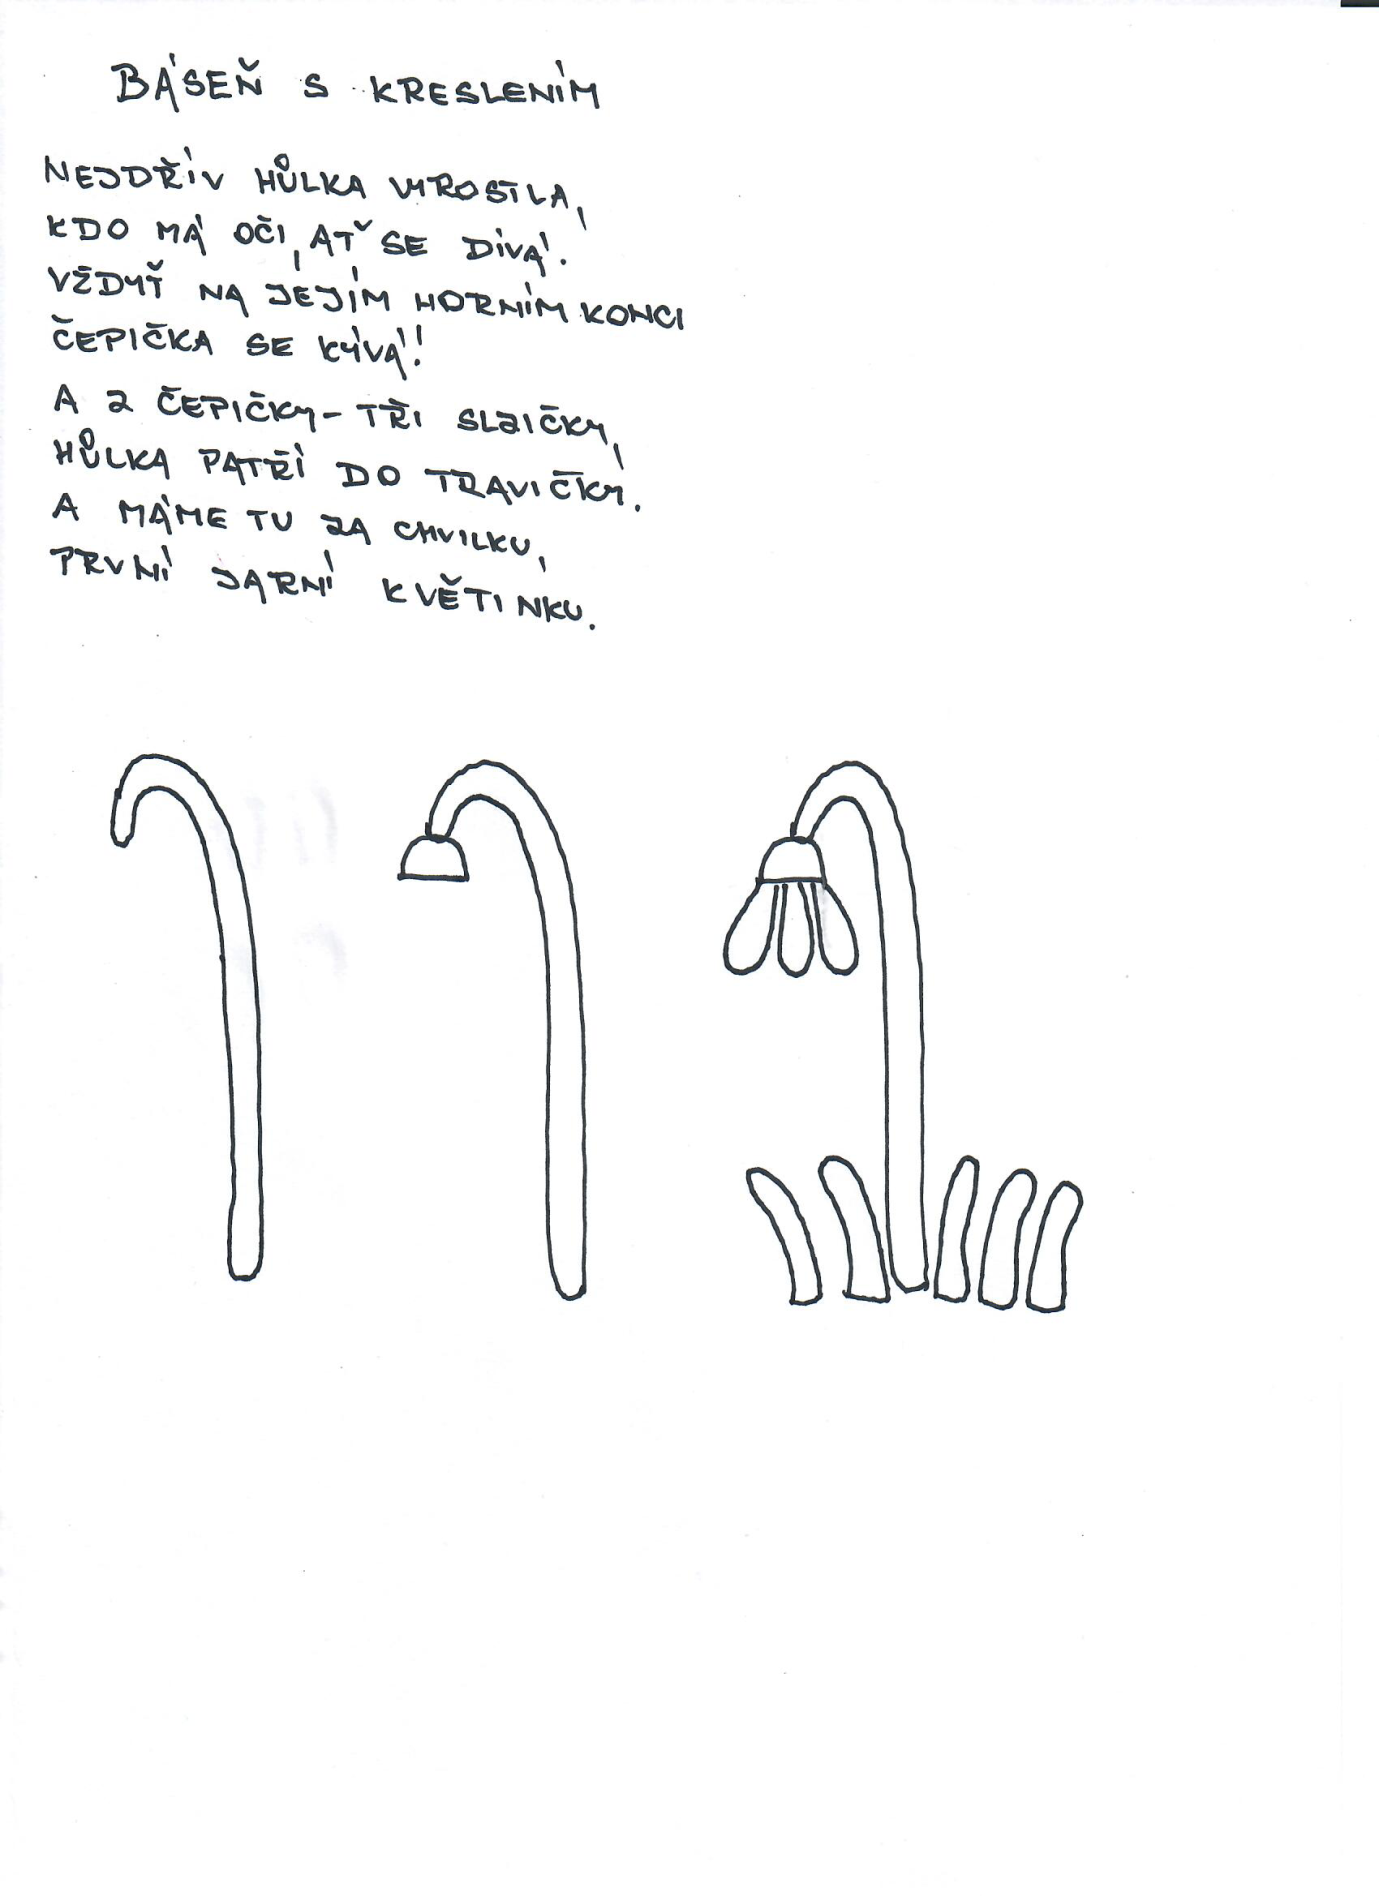 BÁSEŇ S KRESLENÍM
NEJDŘÍV HŮLKA VYROSTLA,
KDO MÁ OČI, AŤ SE DÍVÁ.
VŽDYŤ NA JEJÍM HORNÍM KONCI
ČEPIČKA SE KÝVÁ!
A Z ČEPIČKY - TŘI SLZIČKY,
HŮLKA PATŘÍ DO TRAVIČKY.
A MÁME TU ZA CHVILKU,
PRVNÍ JARNÍ KVĚTINKU.